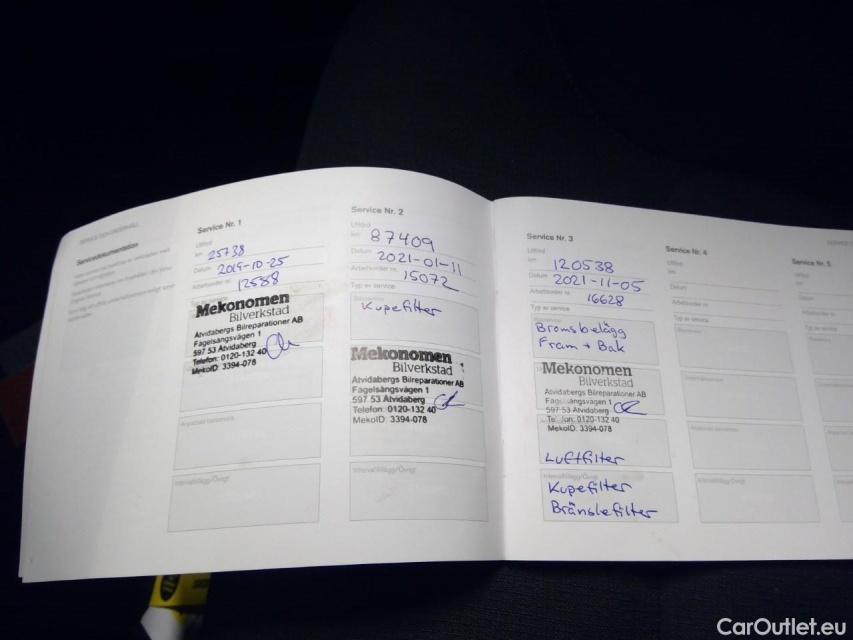 Servicedokumentation
Service Nr. 1
Utförd
km 25738
Datum 2019-10-25
Arbetsorder nr. 12588
Mekonomen
Bilverkstad
Åtvidabergs Bilreparationer AB
Fagelsångsvägen 1
597 53 Åtvidaberg
Telefon: 0120-132 40
MekoID: 3394-078
Intervalltillägg/Övrigt
Service Nr. 2
Utförd
km 87409
Datum 2021-01-11
Arbetsorder nr. 15072
Typ av service
Kupefilter
Mekonomen
Bilverkstad
Åtvidabergs Bilreparationer AB
Fagelsångsvägen 1
597 53 Åtvidaberg
Telefon: 0120-132 40
MekoID: 3394-078
Intervalltillägg/Övrigt
Service Nr. 3
Utförd
km 120538
Datum 2021-11-05
Arbetsorder nr. 16628
Typ av service
Bromsbelägg
Fram + Bak
Mekonomen
Bilverkstad
Åtvidabergs Bilreparationer AB
Fagelsångsvägen 1
597 53 Åtvidaberg
Telefon: 0120-132 40
MekoID: 3394-078
Luftfilter
Intervalltillägg/Övrigt
Kupefilter
Bränslefilter
Service Nr. 4
Utförd
km
Datum
Arbetsorder nr.
Typ av service
Intervalltillägg/Övrigt
Service Nr. 5
CarOutlet.eu